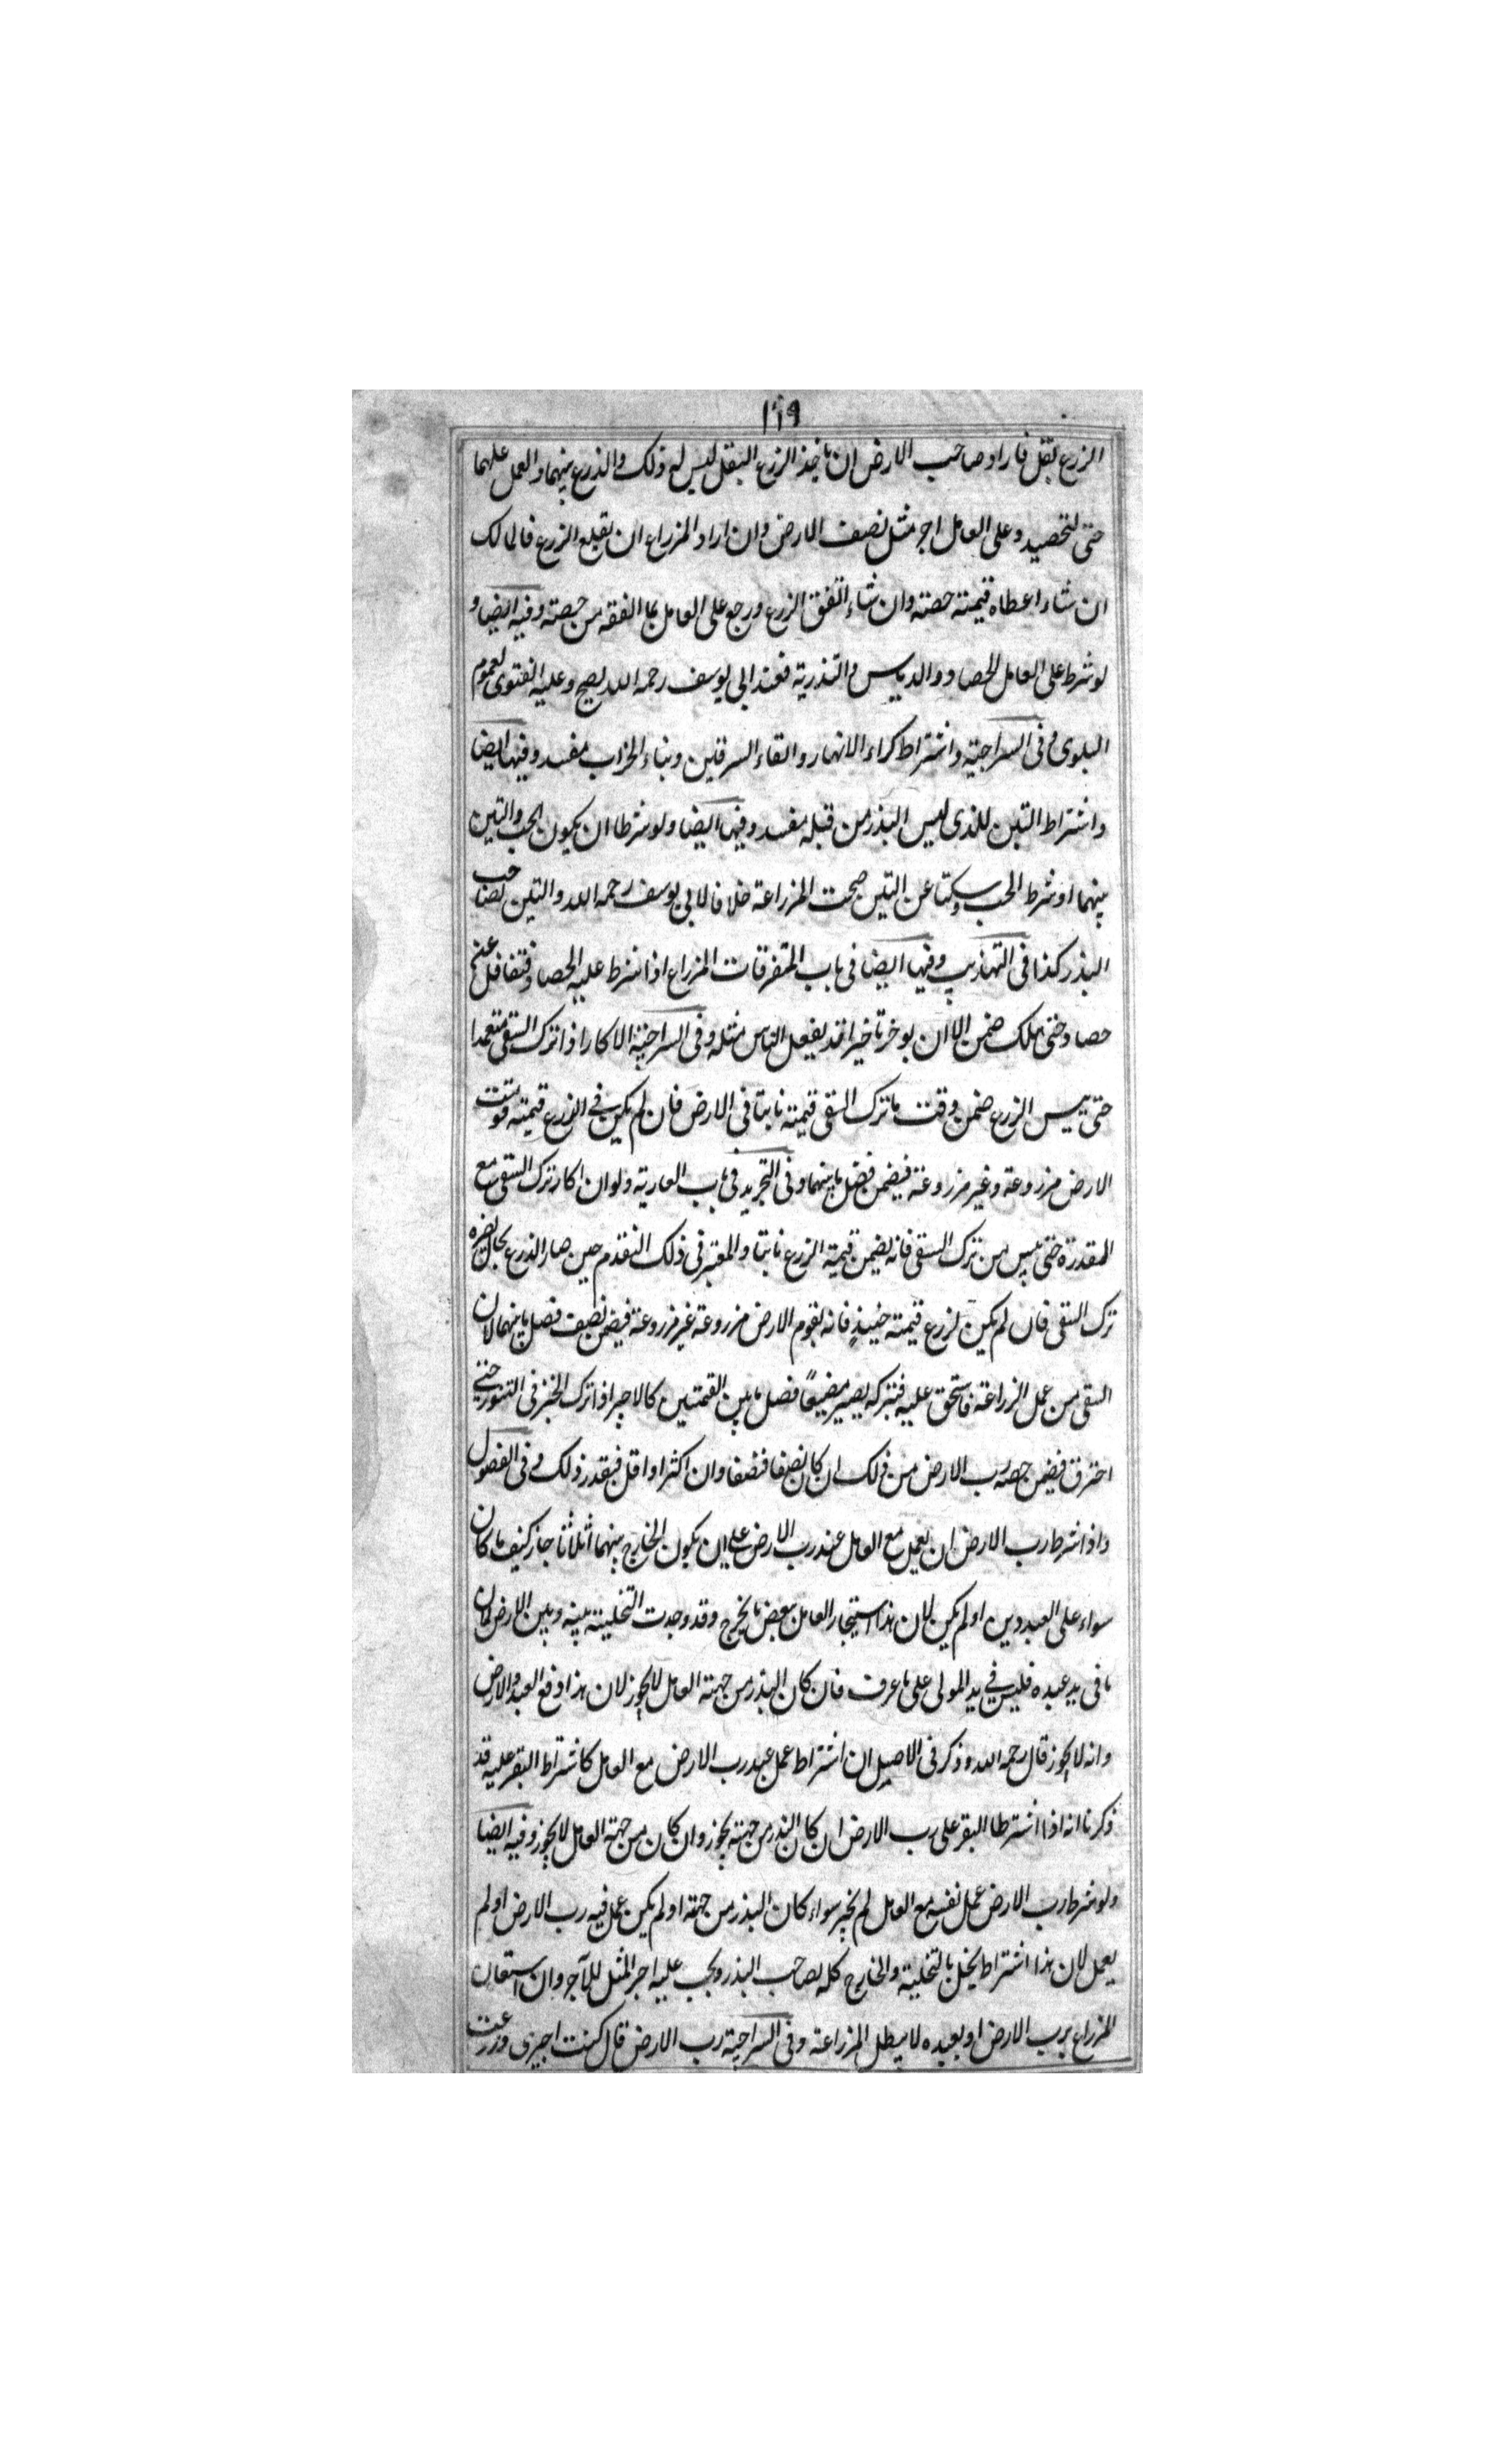 ١٦٩
الزرع بقل فاراد صاحب الارض ان ياخذ الزرع البقل ليس له ذلك والذرع بينهما والعمل عليهما
حتى لتحصيد وعلى العامل اجر مثل نصف الارض وان اراد المزراع ان يقلع الزرع فالمالك
ان شاء اعطاه قيمته حصته وان شاء اتفق الزرع ورجع على العامل بما انفقه من حصته وفيه ايضا و
لو شرط على العامل الحصاد والدياس والتذرية فعند ابي يوسف رحمه الله يصح وعليه الفتوى لعموم
البلوى وفي السراجية واشتراط كراء الانهار والقاء السرقين وبناء الخراب مفسد وفيها ايضا
واشتراط التبن للذي ليس البذر من قبله مفسد وفيها ايضا ولو شرطا ان يكون الحب والتبن
بينهما او شرط الحب وسكتا عن التبن صحت المزراعة خلافا لابي يوسف رحمه الله والتبن لصاحب
البذر كذا في التهذيب وفيها ايضا في باب المتفرقات المزراع اذا شرط عليه الحصاد فتغافل عنه
حصاد حتى هلك ضمن الا ان يوخر تاخيرا قد يفعل الناس مثله وفي السراجية الاكار اذا ترك السقي متعمدا
حتى يبس الزرع ضمن وقت ما ترك السقي قيمته نابتا في الارض فان لم يكن في الزرع قيمته قومت
الارض مزروعة وغير مزروعة فيضمن فضل ما بينهما وفي التجريد في باب العارية ولو ان اكار ترك السقي مع
المقدرة حتى يبس من ترك السقي فانه يضمن قيمة الزرع نابتا والمعتبر في ذلك التقدم حين صار الذرع بحال يضره
ترك السقي فان لم يكن لزرع قيمته حينئذ فانه يقوم الارض مزروعة غير مزروعة فيضمن نصف فضل ما بينهما لان
السقي من عمل الزراعة فاستحق عليه فبتركه يصير مضيعا فضل ما بين القيمتين كالاجير اذا ترك الخبز في التنور حتى
احترق فيضمن حصة رب الارض من ذلك ان كان نصفا فنصفا وان اكثر او اقل فبقدر ذلك وفي الفصول
واذا شرط رب الارض ان يعمل مع العامل عند رب الارض على ان يكون الخارج بينهما اثلاثا جاز كيف ما كان
سواء على العبد دين او لم يكن لان هذا استيجار العامل ببعض ما يخرج وقد وجدت التخلية بينه وبين الارض لان
ما في يد عبده فليس في يد المولى على ما عرف فان كان البذر من جهة العامل لا يجوز لان هذا دفع العبد والارض
وانه لا يجوز قال رحمه الله وذكر في الاصل ان اشتراط عمل عبد رب الارض مع العامل كاشتراط البقر عليه قد
ذكرنا انه اذا اشترطا البقر على رب الارض ان كان البذر من جهته يجوز وان كان من جهة العامل لا يجوز وفيه ايضا
ولو شرط رب الارض عمل نفسه مع العامل لم يجز سواء كان البذر من جهته او لم يكن عمل فيه رب الارض او لم
يعمل لان هذا اشتراط يخل بالتخلية والخارج كله لصاحب البذر ويجب عليه اجر المثل للآخر وان استعان
المزراع برب الارض او بعبده لا يبطل المزراعة وفي السراجية رب الارض قال كنت اجيري وزرعت